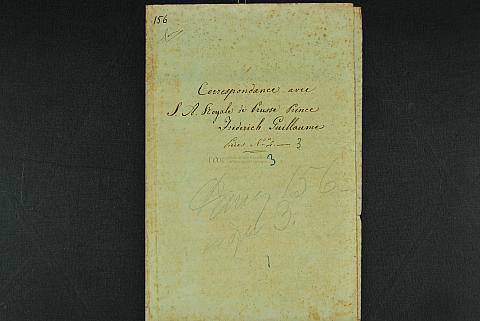 156
Correspondance avec
S. A. Royale de Prusse Prince
Frederich Guillaume
3
3
156
3.
1